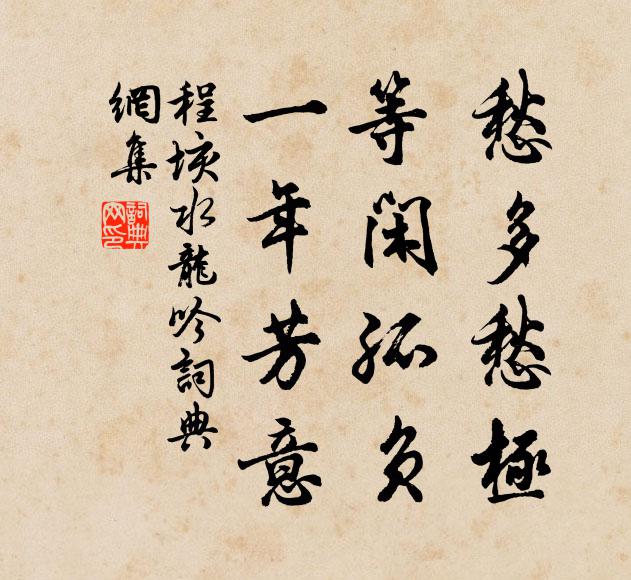 愁多愁極
等閑孤負
一年芳意
程垓水龍吟詞典
網集
詞典
網印